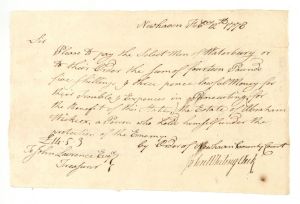 Newhaven Feb 12th 1778
Sir
Please to pay the Select Men of Waterbury or
to their Order the Sum of fourteen Pounds
five Shillings & three pence lawful Money for
their Trouble & Expences in
the Benefit of this State the Estate of Abraham
Hickox, a Person who hath himself under the
protection of the Enemy
£14.5.3 by Order of Newhaven County Court
To John Lawrence Esqr John Whiting Clerk
Treasurer